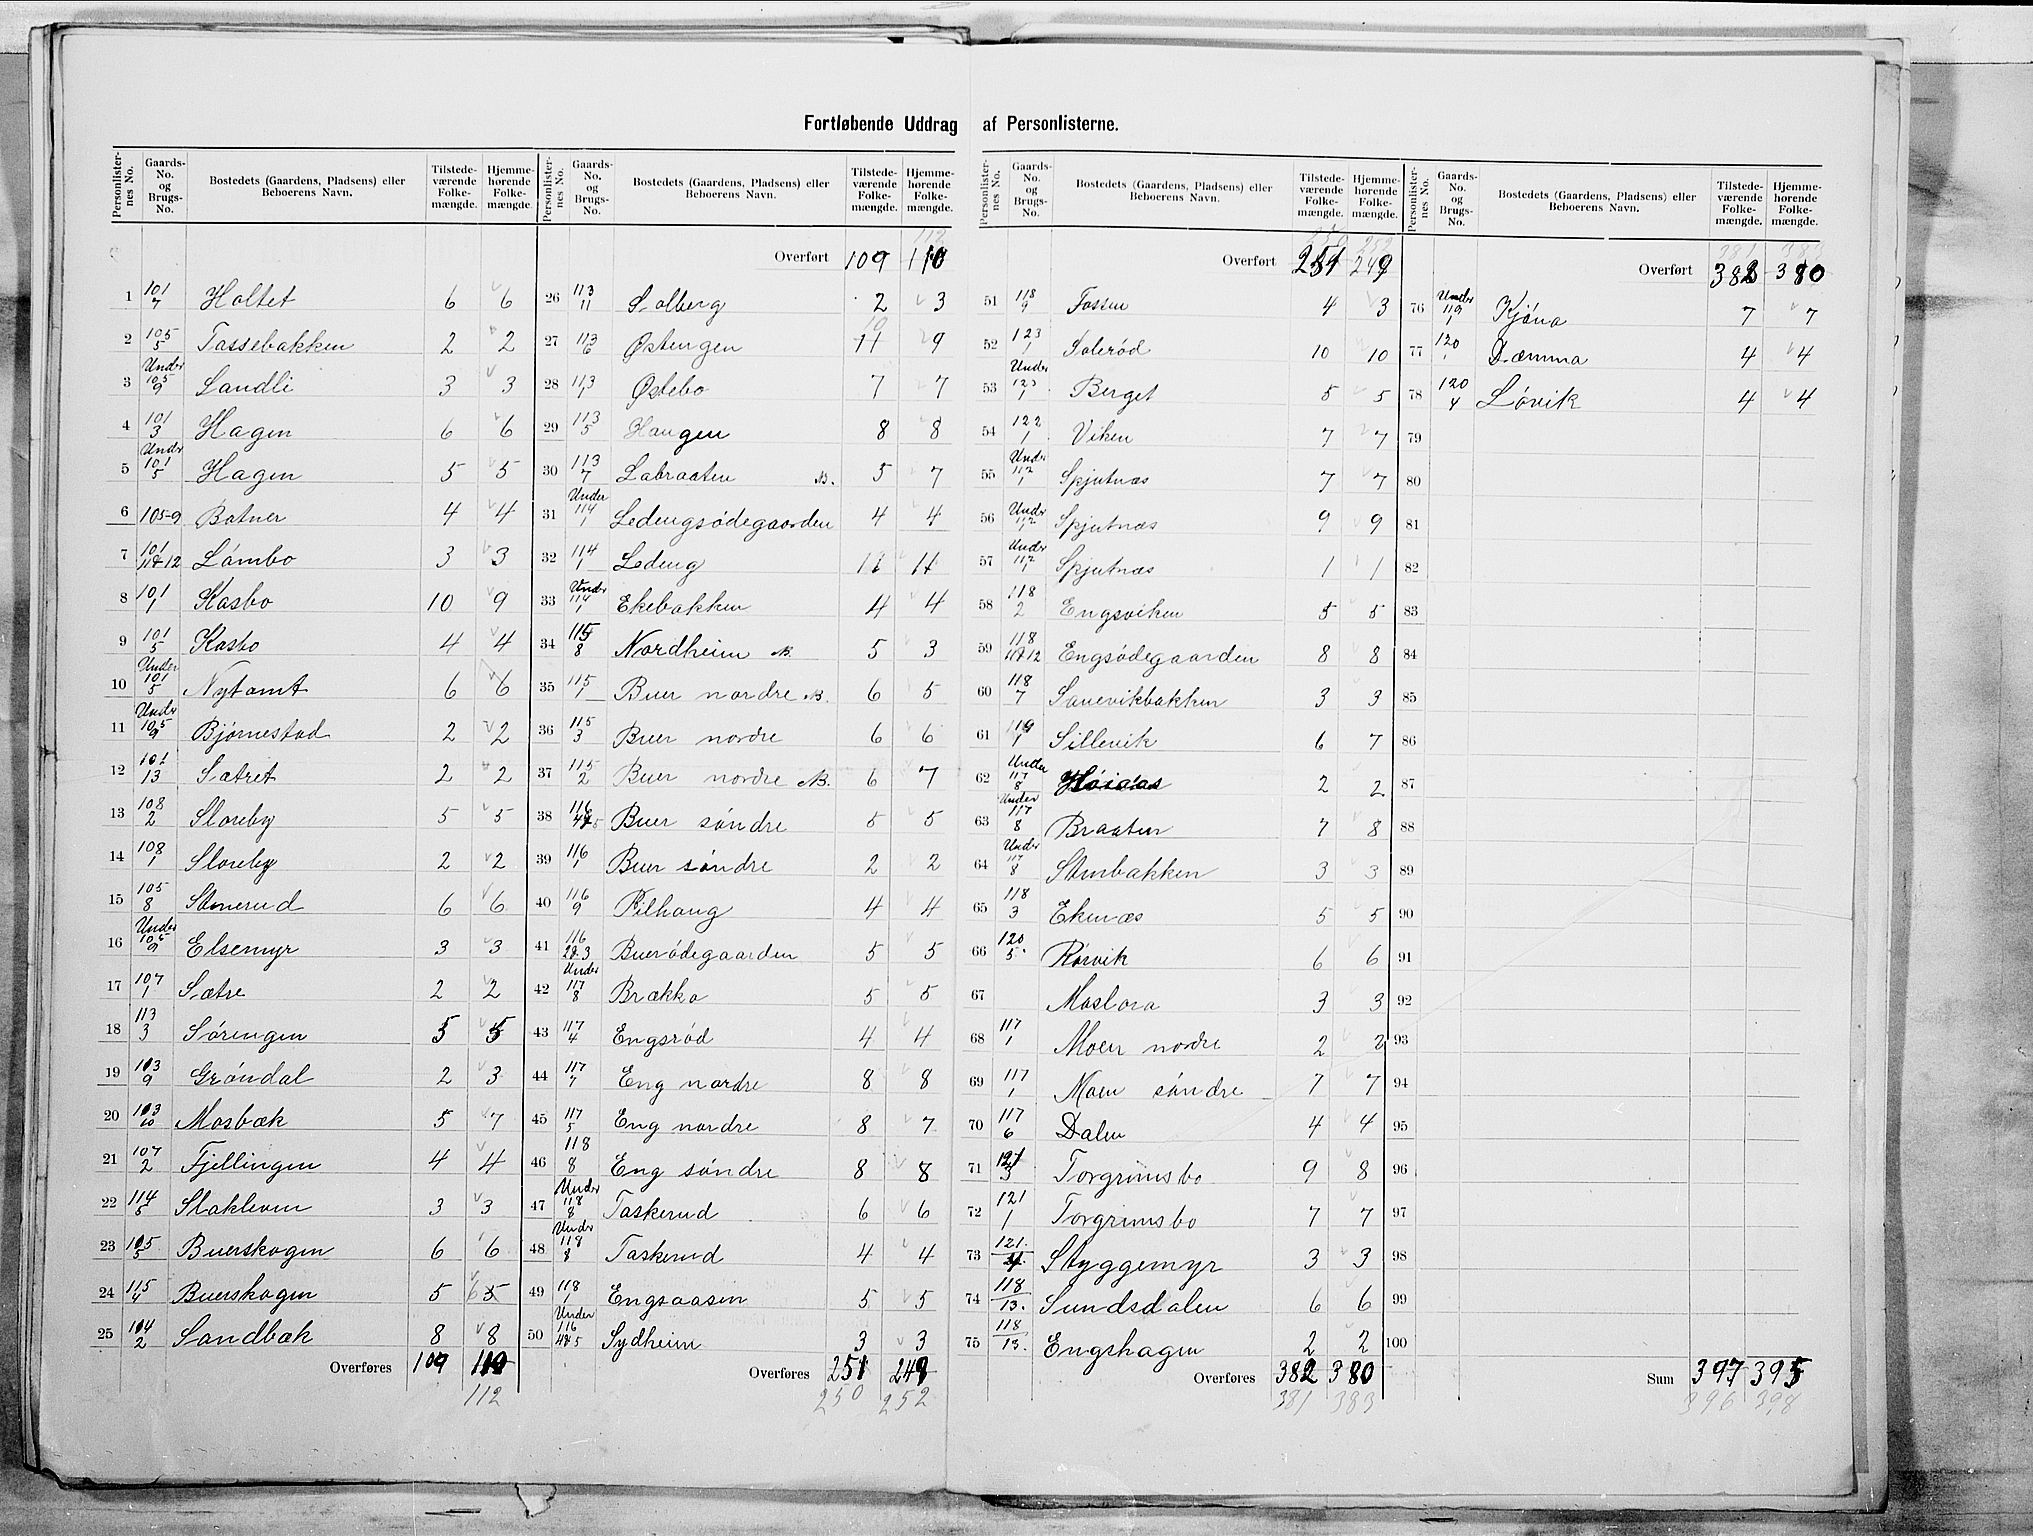 Fortløbende Uddrag af Personlisterne.
Personlisternes No. | Gaards-No. og Brugs-No. | Bostedets (Gaardens, Pladsens) eller Beboerens Navn. | Tilstedeværende Folkemængde. | Hjemmehørende Folkemængde.
1 101/7 Holtet 6 6
2 105/5 Tassebakken 2 2
3 Under 105/9 Sandli 3 3
4 101/3 Hagen 6 6
5 Under 101/5 Hagen 5 5
6 105-9 Botner 4 4
7 101/11&12 Lømbo 3 3
8 101/1 Kasbo 10 9
9 101/5 Kasbo 4 4
10 Under 101/5 Nytomt 6 6
11 Under 105/9 Bjørnestad 2 2
12 101/13 Sætret 2 2
13 108/2 Storeby 5 5
14 108/1 Storeby 2 2
15 105/8 Stenerud 6 6
16 Under 105/9 Elsemyr 3 3
17 107/1 Sætre 2 2
18 113/3 Sørengen 5 5
19 103/9 Grøndal 2 3
20 103/10 Mosbæk 5 7
21 107/2 Fjellingen 4 4
22 114/5 Stakleven 3 3
23 105/5 Buerskogen 6 6
24 115/4 Buerskogen 5 5
25 104/2 Sandbæk 8 8
Overføres 109 110
112
Personlisternes No. | Gaards-No. og Brugs-No. | Bostedets (Gaardens, Pladsens) eller Beboerens Navn. | Tilstedeværende Folkemængde. | Hjemmehørende Folkemængde.
112
Overført 109 110
26 113/11 Solberg 2 3
10
27 113/6 Østengen 11 9
28 113/1 Østebo 7 7
29 113/5 Haugen 8 8
30 113/7 Labraaten N. 5 7
31 Under 114/1 Ledengsødegaarden 4 4
32 114/1 Ledeng 11 11
33 Under 114/1 Ekebakken 4 4
34 115/8 Nordheim N. 5 3
35 115/1 Buer nordre N. 6 5
36 115/3 Buer nordre 6 6
37 115/2 Buer nordre N. 6 7
38 116/4&5 Buer søndre 5 5
39 116/1 Buer søndre 2 2
40 116/9 Pilhaug 4 4
41 116/2&3 Buerødegaarden 5 5
42 Under 117/8 Brække 5 5
43 117/4 Engsrød 4 4
44 117/7 Eng nordre 8 8
45 117/5 Eng nordre 8 7
46 118/8 Eng søndre 8 8
47 Under 118/8 Taskerud 6 6
48 Under 118/8 Taskerud 4 4
49 118/1 Engsaasen 5 5
50 Under 116/4&5 Sydheim 3 3
Overføres 251 249
250 252
Personlisternes No. | Gaards-No. og Brugs-No. | Bostedets (Gaardens, Pladsens) eller Beboerens Navn. | Tilstedeværende Folkemængde. | Hjemmehørende Folkemængde.
250 252
Overført 251 249
51 118/9 Fossen 4 3
52 123/1 Solerød 10 10
53 Under 123/1 Berget 5 5
54 122/1 Viken 7 7
55 Under 112/1 Spjutnæs 7 7
56 Under 112/1 Spjutnæs 9 9
57 Under 112/1 Spjutnæs 1 1
58 118/2 Engsviken 5 5
59 118/11&12 Engsødegaarden 8 8
60 118/7 Sanevikbakken 3 3
61 119/1 Sillevik 6 7
62 Under 117/8 Høiaas 2 2
63 Under 117/8 Braaten 7 8
64 Under 117/8 Stenbakken 3 3
65 118/3 Ekenæs 5 5
66 120/5 Rørvik 6 6
67 Moslora 3 3
68 117/1 Moen nordre 2 2
69 117/1 Moen søndre 7 7
70 117/6 Dalen 4 4
71 121/3 Torgrimsbo 9 8
72 121/1 Torgrimsbo 7 7
73 121/4 Styggemyr 3 3
74 118/13. Sundsdalen 6 6
75 118/13. Engshagen 2 2
Overføres 382 380
381 383
Personlisternes No. | Gaards-No. og Brugs-No. | Bostedets (Gaardens, Pladsens) eller Beboerens Navn. | Tilstedeværende Folkemængde. | Hjemmehørende Folkemængde.
381 383
Overført 382 380
76 Under 119/1 Kjøna 7 7
77 120/1 Dæmma 4 4
78 120/4 Løvik 4 4
79
80
81
82
83
84
85
86
87
88
89
90
91
92
93
94
95
96
97
98
99
100
Sum 397 395
396 398